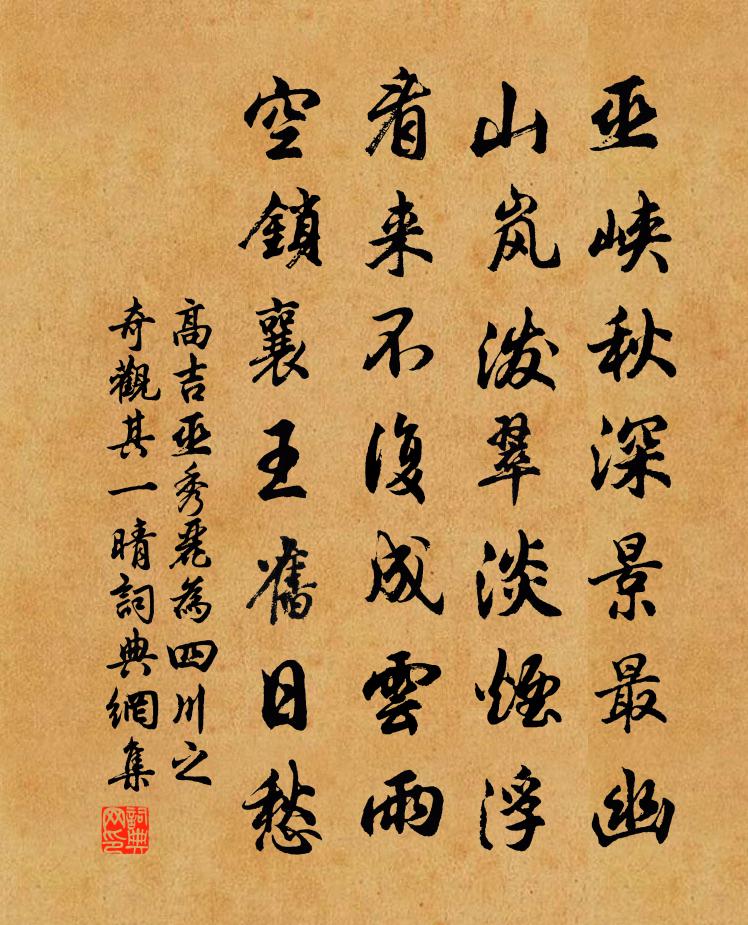 巫峡秋深景最幽
山岚泼翠淡煙浮
看来不復成雲雨
空鎖襄王舊日愁
高吉巫秀麗為四川之
奇觀其一晴詞典網集
詞典网印